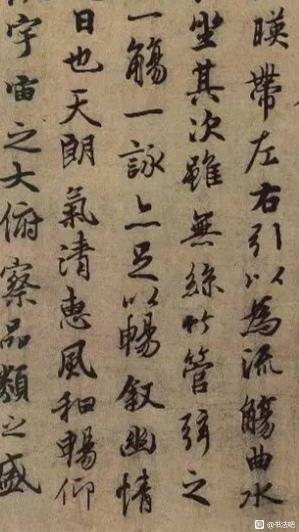 暎帶左右引以為流觴曲水
坐其次雖無絲竹管弦之
一觴一詠亦足以暢叙幽情
日也天朗氣清惠風和暢仰
宇宙之大俯察品類之盛
@书法吧